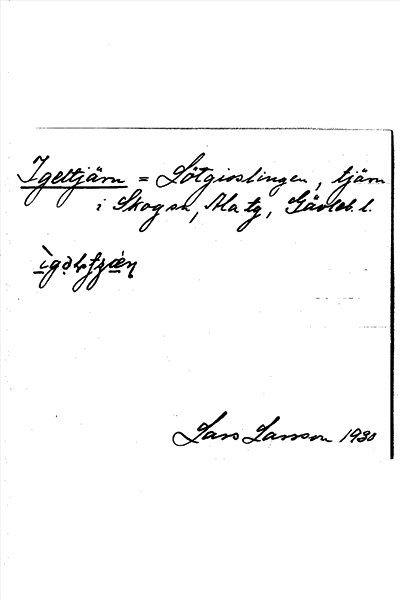 Igeltjärn = Lötgisslingen, tjärn
i Skog sn, Ala tg, Gävleb. l.
Lars Larsson 1930